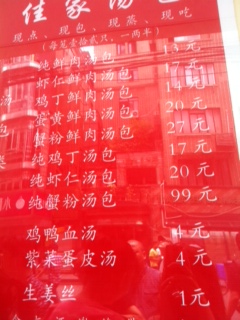 佳家汤
现点、现包、现蒸、现吃
一两半)
纯鲜肉汤包 元
虾仁鲜肉汤包 17元
鸡丁鲜肉汤包 14元
蛋黄鲜肉汤包 20元
蟹粉鲜肉汤包 27元
纯鸡丁汤包 17元
纯虾仁汤包 20元
纯蟹粉汤包 99元
鸡鸭血汤 4元
紫菜蛋皮汤 4元
生姜丝 1元